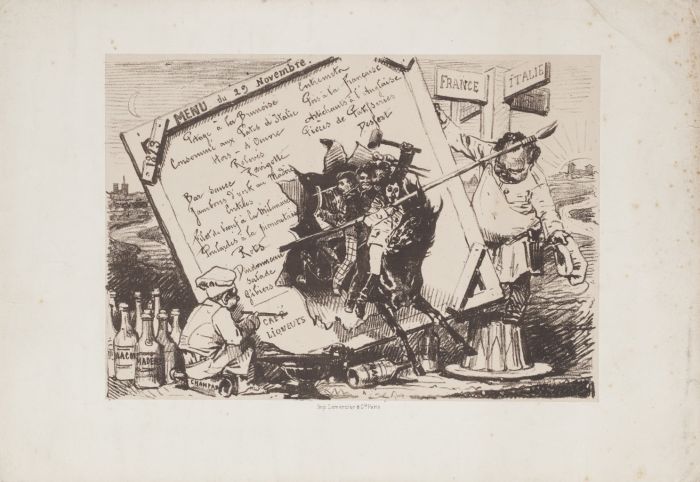 MENU du 29 Novembre.
1879
Potage à la Brunoise
Consommé aux Pates d'Italie
Hors-d'Œuvre
Relevés
Bar Sauce Périgotte
Jambons d'york au Madère
Entrées
Filet de bœuf à la Milanaise
Poulardes à la piémontaise
Rots
Dindonneaux
Salade
Gibiers
Entremets
Pois à la Française
Artichauts à l'Anglaise
Pièces de Patisseries
Dessert
CAFÉ
LIQUEURS
FRANCE
ITALIE
MACON
MADERE
CHAMPAG
Imp. Lemercier & Cie Paris